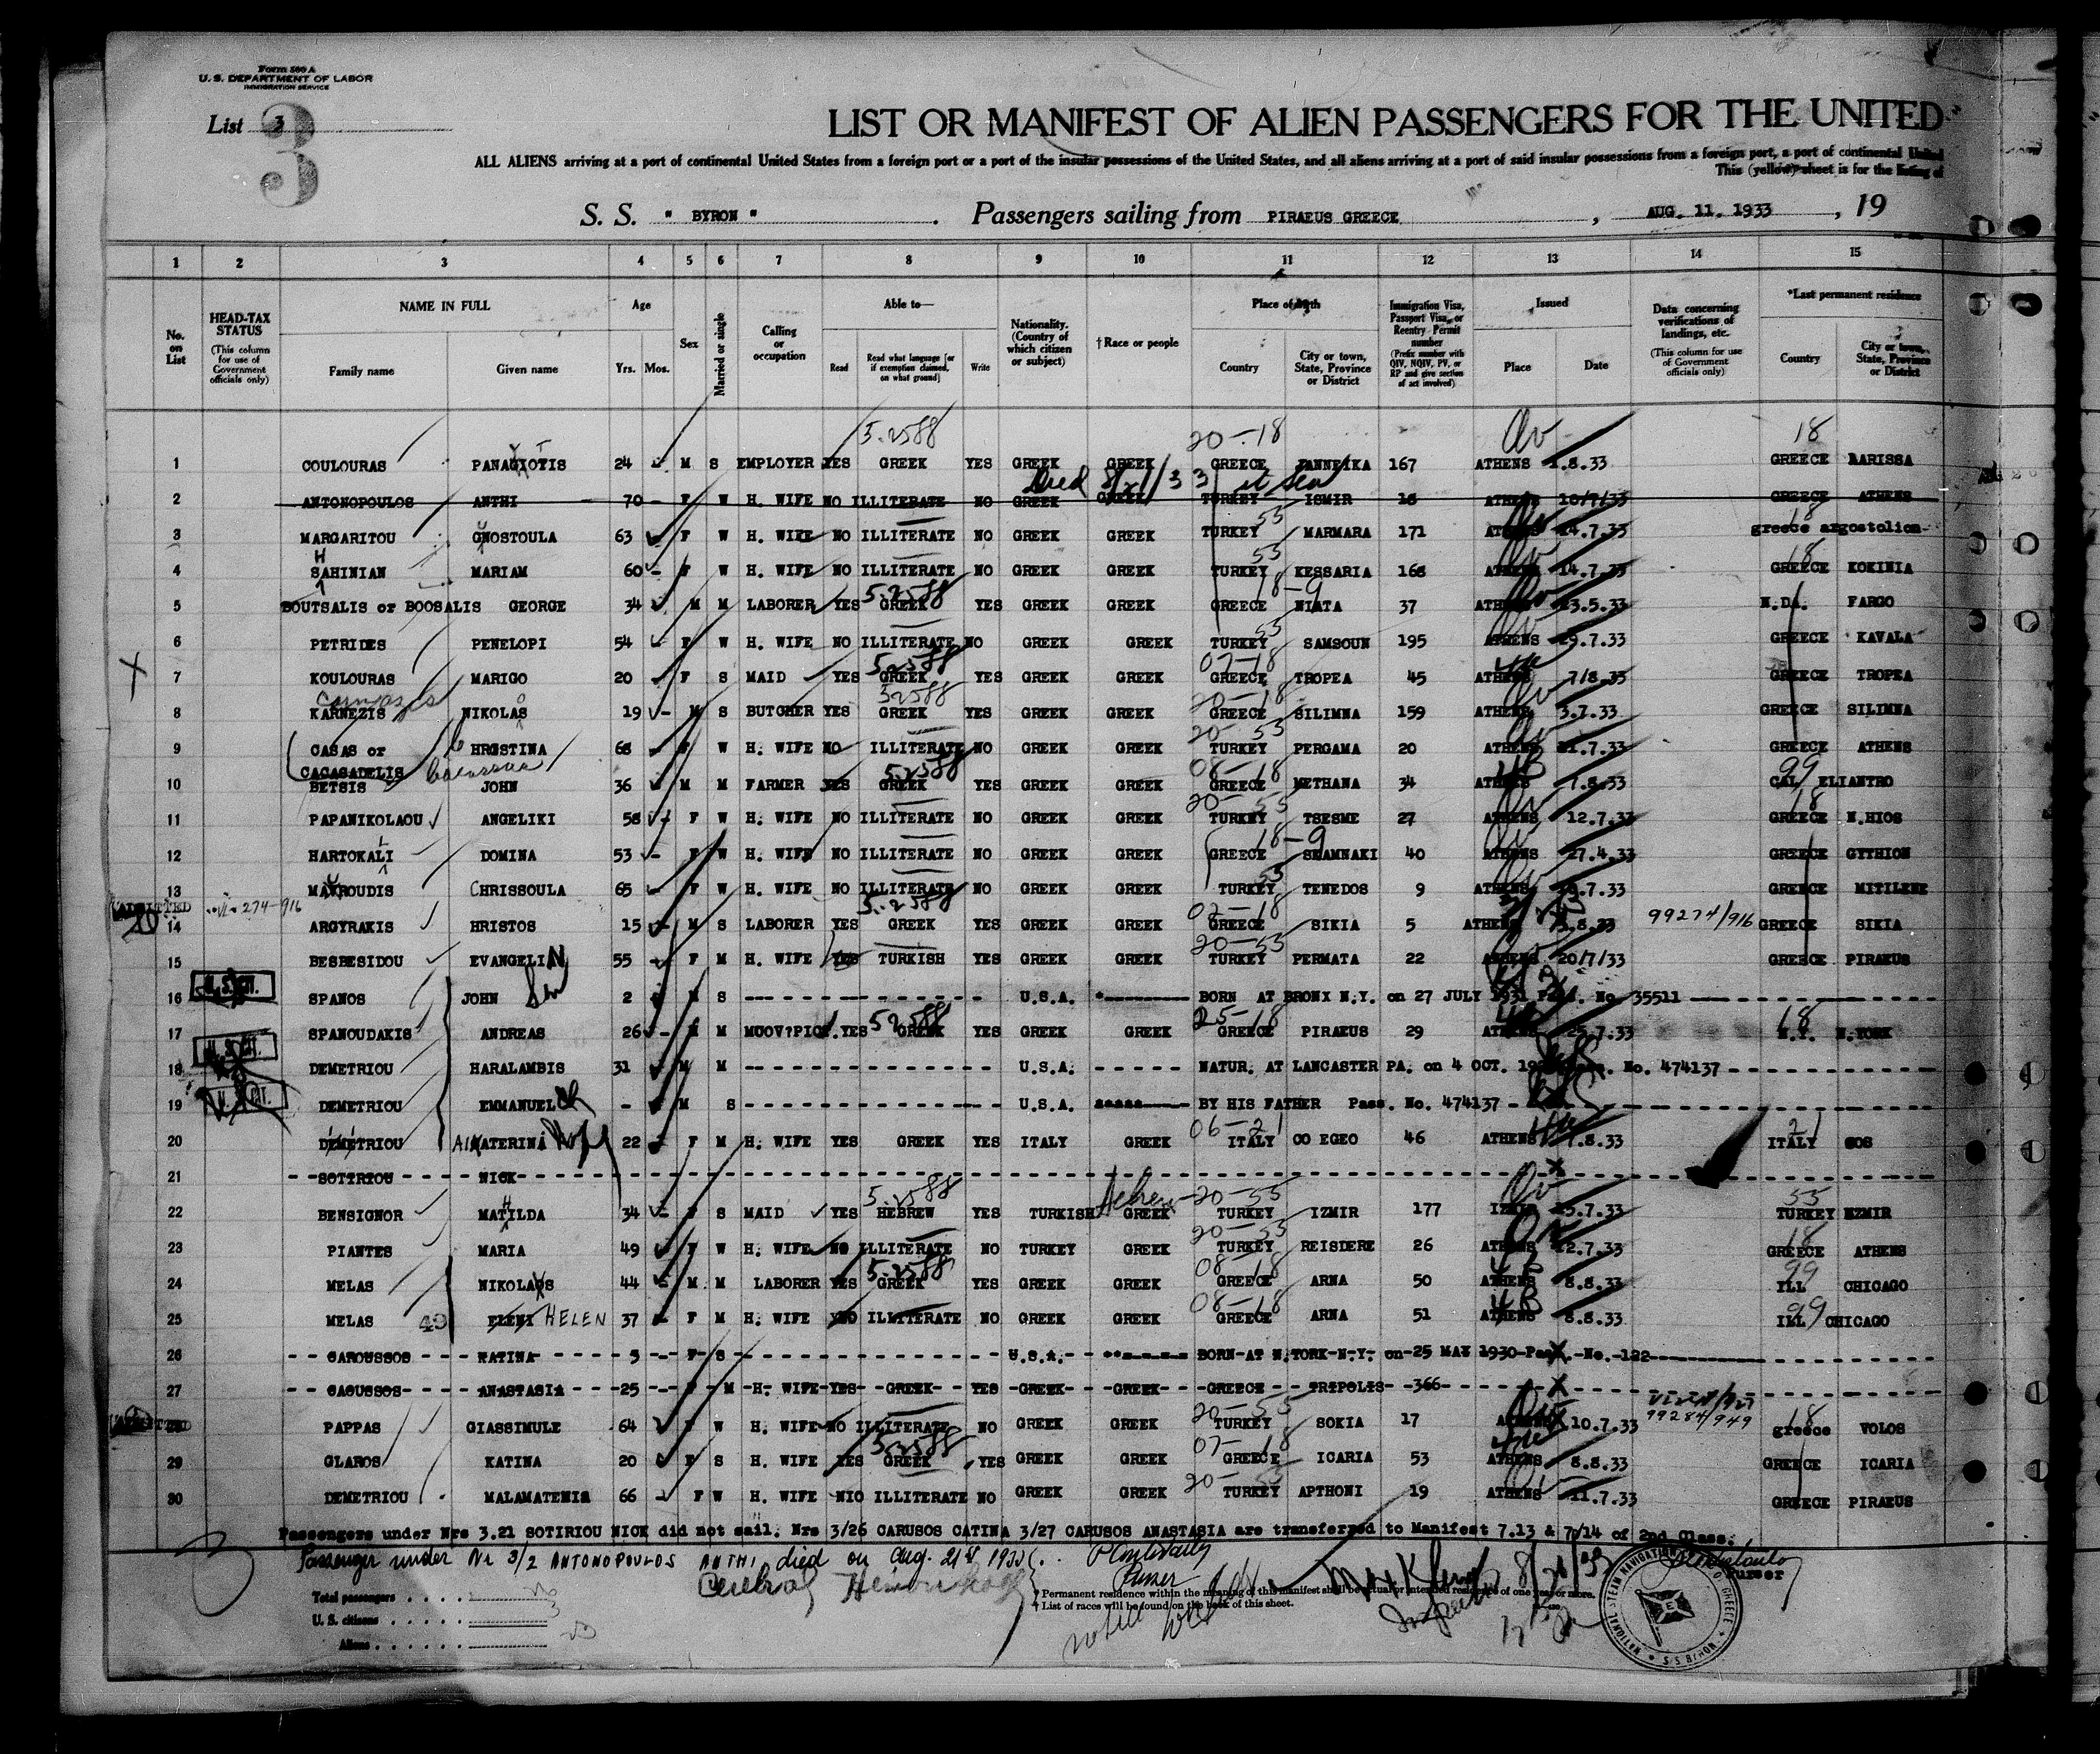 Form 500 A
U. S. DEPARTMENT OF LABOR
IMMIGRATION SERVICE
List 3
3
LIST OR MANIFEST OF ALIEN PASSENGERS FOR THE UNITED
ALL ALIENS arriving at a port of continental United States from a foreign port or a port of the insular possessions of the United States, and all aliens arriving at a port of said insular possessions from a foreign port, a port of continental United
This (yellow) sheet is for the listing of
S. S. " BYRON " . Passengers sailing from PIRAEUS GREECE , AUG. 11. 1933 , 19
1 2 3 4 5 6 7 8 9 10 11 12 13 14 15
No. on List
HEAD-TAX STATUS (This column for use of Government officials only)
NAME IN FULL Family name Given name
Age Yrs. Mos.
Sex
Married or single
Calling or occupation
Able to— Read Read what language [or if exemption claimed, on what ground] Write
Nationality. (Country of which citizen or subject)
† Race or people
Place of birth Country City or town, State, Province or District
Immigration Visa, Passport Visa, or Reentry Permit number (Prefix number with QIV, NQIV, PV, or RP and give section of act involved)
Issued Place Date
Data concerning verifications of landings, etc. (This column for use of Government officials only)
*Last permanent residence Country City or town, State, Province or District
5-2588 20-18 18
1 COULOURAS PANAGIOTIS 24 M S EMPLOYER YES GREEK YES GREEK GREEK GREECE 167 ATHENS .8.33 GREECE LARISSA
Died 8/21/33 at Sea
2 ANTONOPOULOS ANTHI 70 - F W H. WIFE NO ILLITERATE NO GREEK GREEK TURKEY ISMIR 18 ATHENS 10/7/33 GREECE ATHENS
53 18
3 MARGARITOU GNOSTOULA 63 F W H. WIFE NO ILLITERATE NO GREEK GREEK TURKEY MARMARA 171 ATHENS 14.7.33 greece argostolion
H 53 18
4 SAHINIAN MARIAM 60 - F W H. WIFE NO ILLITERATE NO GREEK GREEK TURKEY KESSARIA 168 ATHENS 14.7.33 GREECE KOKINIA
5-2588 18-9
5 BOUTSALIS or BOOSALIS GEORGE 34 M M LABORER YES GREEK YES GREEK GREEK GREECE NIATA 37 ATHENS 23.5.33 N.DA. FARGO
53
6 PETRIDES PENELOPI 54 - F W H. WIFE NO ILLITERATE NO GREEK GREEK TURKEY SAMSOUN 195 ATHENS 29.7.33 GREECE KAVALA
5-2588 07-18
7 KOULOURAS MARIGO 20 F S MAID YES GREEK YES GREEK GREEK GREECE TROPEA 45 ATHENS 7/8.33 GREECE TROPEA
52588 20-18
8 KARNEZIS NIKOLAS 19 - M S BUTCHER YES GREEK YES GREEK GREEK GREECE SILIMNA 159 ATHENS 3.7.33 GREECE SILIMNA
20-53
9 CASAS or CACASADELIS HRISTINA 68 F W H. WIFE NO ILLITERATE NO GREEK GREEK TURKEY PERGAMA 20 ATHENS 11.7.33 GREECE ATHENS
52588 08-18 99
10 BETSIS JOHN 36 M M FARMER YES GREEK YES GREEK GREEK GREECE METHANA 34 ATHENS 7.8.33 CAL ELIANTRO
20-53 18
11 PAPANIKOLAOU ANGELIKI 58 - F W H. WIFE NO ILLITERATE NO GREEK GREEK TURKEY TSESME 27 ATHENS 12.7.33 GREECE N.HIOS
L 18-9
12 HARTOKALI DOMINA 53 - F W H. WIFE NO ILLITERATE NO GREEK GREEK GREECE SKAMNAKI 40 ATHENS 27.4.33 GREECE GYTHION
53
13 MAVROUDIS CHRISSOULA 65 F W H. WIFE NO ILLITERATE NO GREEK GREEK TURKEY TENEDOS 9 ATHENS .7.33 GREECE MITILENE
ADMITTED 274-916 5-2588 02-18
14 ARGYRAKIS HRISTOS 15 M S LABORER YES GREEK YES GREEK GREEK GREECE SIKIA 5 ATHENS 3.8.33 99274/916 GREECE SIKIA
20-53
15 BESBESIDOU EVANGELIN 55 F M H. WIFE YES TURKISH YES GREEK GREEK TURKEY PERMATA 22 ATHENS 20/7/33 GREECE PIRAEUS
16 SPANOS JOHN 2 M S U.S.A. BORN AT BRONX N.Y. on 27 JULY 1931 Pass. No. 35511
52588 25-18 18
17 SPANOUDAKIS ANDREAS 26 - M M MOOV?PICT. YES GREEK YES GREEK GREEK GREECE PIRAEUS 29 ATHENS 25.7.33 N.Y. N.YORK
18 DEMETRIOU HARALAMBIS 31 M M U.S.A. NATUR. AT LANCASTER PA. on 4 OCT. No. 474137
19 DEMETRIOU EMMANUEL - M S U.S.A. BY HIS FATHER Pass. No. 474137
06-21 21
20 DEMETRIOU AIKATERINI 22 F M H. WIFE YES GREEK YES ITALY GREEK ITALY CO EGEO 46 ATHENS 7.8.33 ITALY COS
21 SOTIRIOU NICK
H 5-2588 Hebrew 20-53 53
22 BENSIGNOR MATILDA 34 F S MAID YES HEBREW YES TURKISH GREEK TURKEY IZMIR 177 IZMIR 15.7.33 TURKEY IZMIR
20-53 18
23 PIANTES MARIA 49 F W H. WIFE NO ILLITERATE NO TURKEY GREEK TURKEY REISDERE 26 ATHENS 12.7.33 GREECE ATHENS
5-2588 08-18 99
24 MELAS NIKOLAOS 44 M M LABORER YES GREEK YES GREEK GREEK GREECE ARNA 50 ATHENS 8.8.33 ILL CHICAGO
08-18 99
25 MELAS 49 ELENI HELEN 37 F M H. WIFE NO ILLITERATE NO GREEK GREEK GREECE ARNA 51 ATHENS 8.8.33 ILL CHICAGO
26 CAROUSSOS KATINA 3 F S U.S.A. BORN AT N.YORK N.Y. on 25 MAY 1930 Pass. No. 122
27 CAOUSSOS ANASTASIA 25 F M H. WIFE YES GREEK YES GREEK GREEK GREECE TRIPOLIS 366
20-53 99284/949 18
28 PAPPAS GIASSIMULE 64 F W H. WIFE NO ILLITERATE NO GREEK GREEK TURKEY SOKIA 17 ATHENS 10.7.33 greece VOLOS
52588 07-18
29 GLAROS KATINA 20 F S H. WIFE YES GREEK YES GREEK GREEK GREECE ICARIA 53 ATHENS 8.8.33 GREECE ICARIA
20-53
30 DEMETRIOU MALAMATENIA 66 F W H. WIFE NIO ILLITERATE NO GREEK GREEK TURKEY APTHONI 19 ATHENS 11.7.33 GREECE PIRAEUS
Passengers under Nrs 3.21 SOTIRIOU NICK did not sail. Nrs 3/26 CARUSOS CATINA 3/27 CARUSOS ANASTASIA are transferred to Manifest 7.13 & 7/14 of 2nd Class.
Passenger under Nr 3/2 ANTONOPOULOS ANTHI died on Aug. 21st 1933
Cerebral Hemorrhage
Purser
Purser
Total passengers
U. S. citizens 3
Aliens
* Permanent residence within the meaning of this manifest shall be actual or intended residence of one year or more.
† List of races will be found on the back of this sheet.
Inspector
NATIONAL STEAM NAVIGATION OF GREECE
E
S/S BYRON